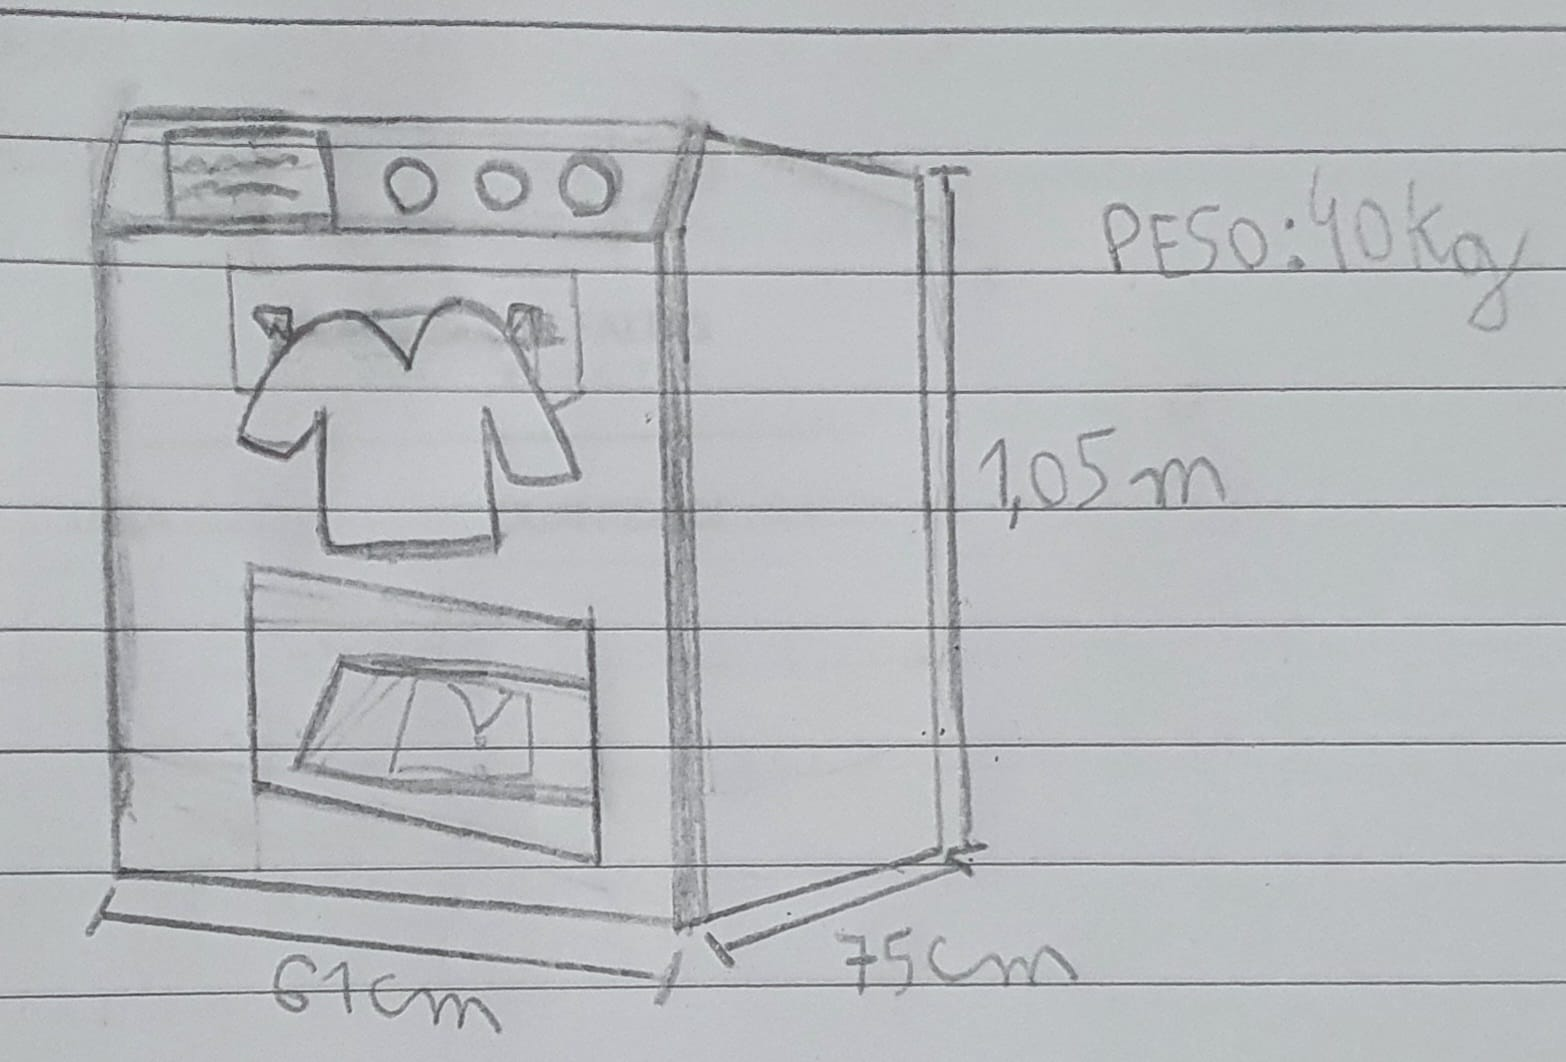 PESO: 40Kg
1,05m
61cm
75cm